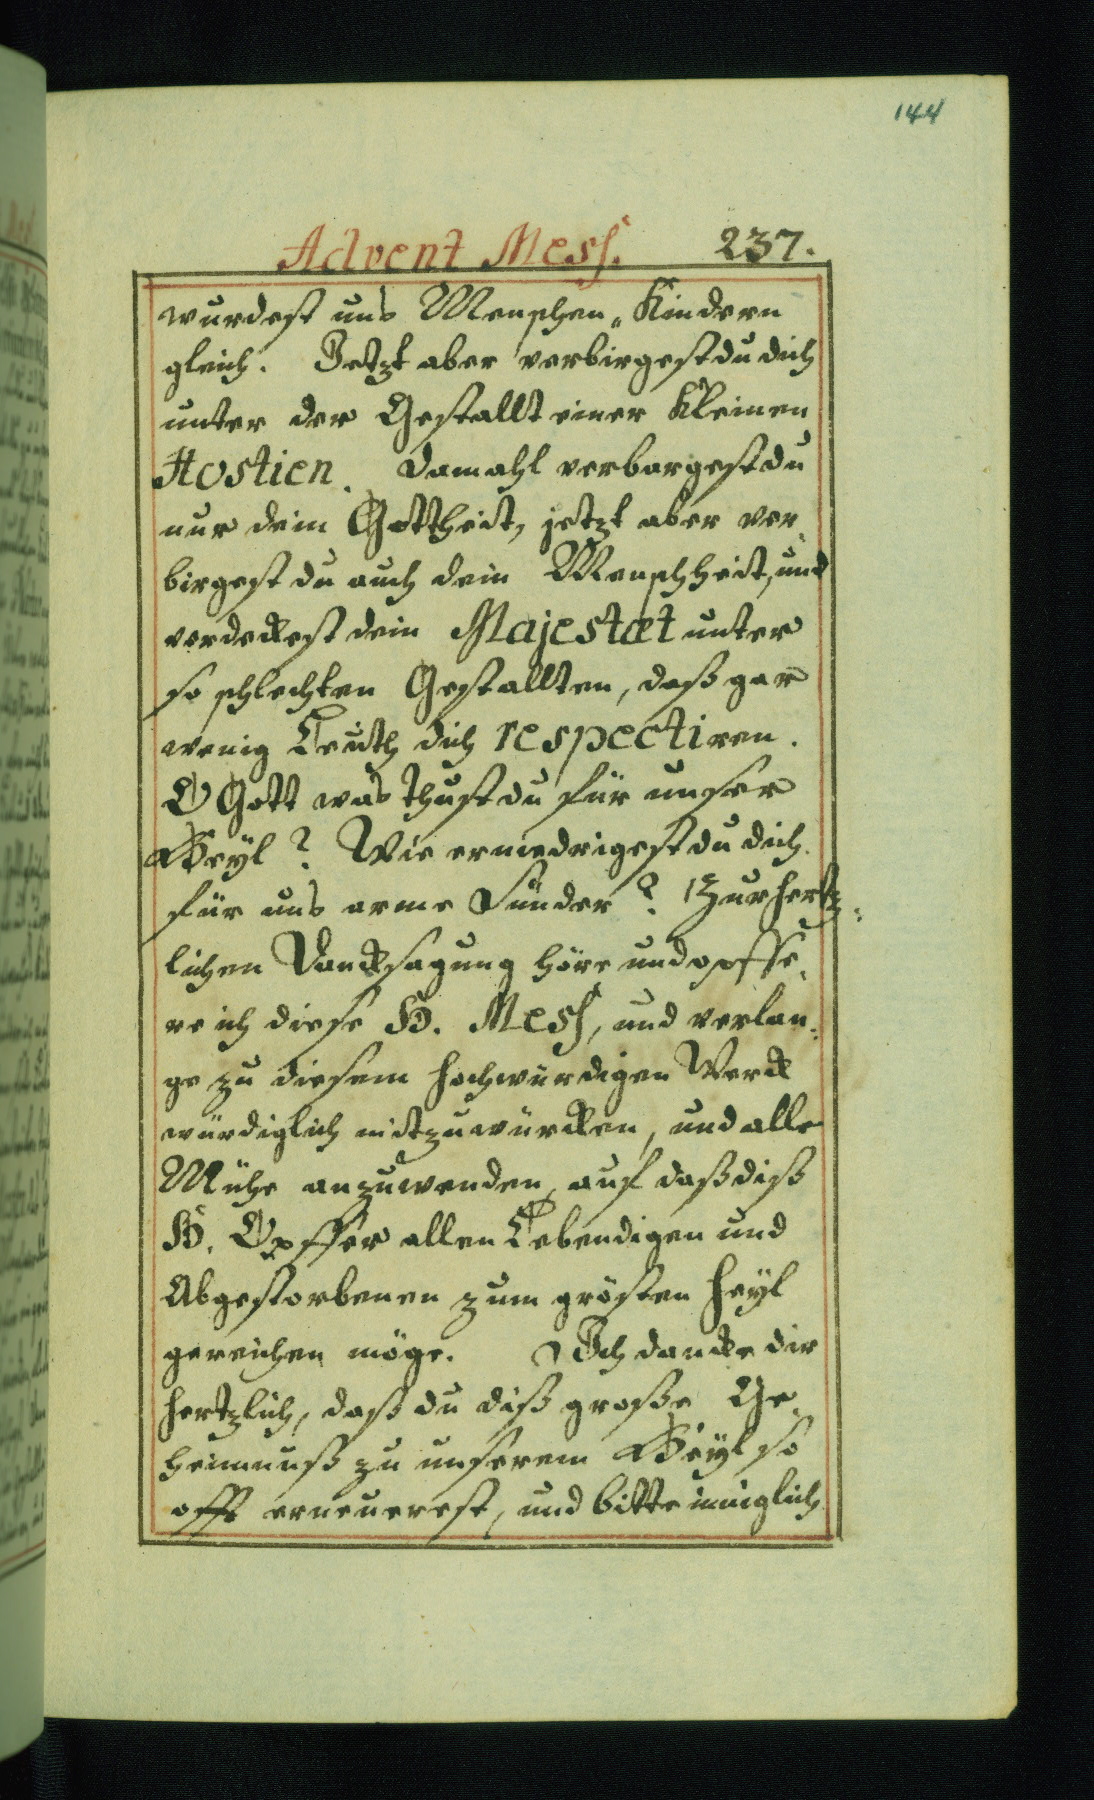 144
Advent Mess. 237.
wurdest uns Menschen„Kindern
gleich. Jetzt aber verbirgest du dich
unter der Gestallt einer Kleinen
Hostien. Damahl verbargest du
nur dein Gottheit, jetzt aber ver„
birgest du auch dein Menschheit, und
verdeckest dein Majestæt unter
so schlechten Gestallten, daß gar
wenig Leuth dich respectiren.
O Gott was thust du für unser
Heyl? Wie erniedrigest du dich
für uns arme Sünder? Zur hertz„
lichen Dancksagung höre und opffe„
re ich diese H. Mess, und verlan„
ge zu diesem hochwürdigen Werck
würdiglich mitzuwürcken, und alle
Mühe anzuwenden, auf daß diß
H. Opffer allen Lebendigen und
Abgestorbenen zum grösten Heyl
gereichen möge. Ich dancke dir
hertzlich, daß du diß große Ge„
heimnuß zu unserem Heyl so
offt erneuerest, und bitte inniglich